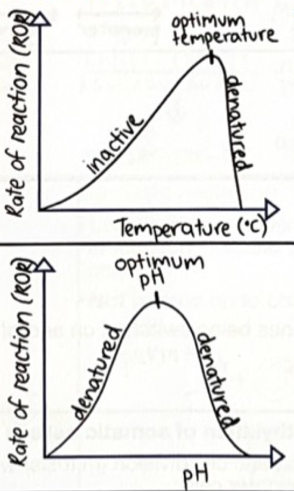 optimum
temperature
Rate of reaction (ROR)
inactive
denatured
Temperature (°C)
optimum
pH
Rate of reaction (ROR)
denatured
denatured
pH